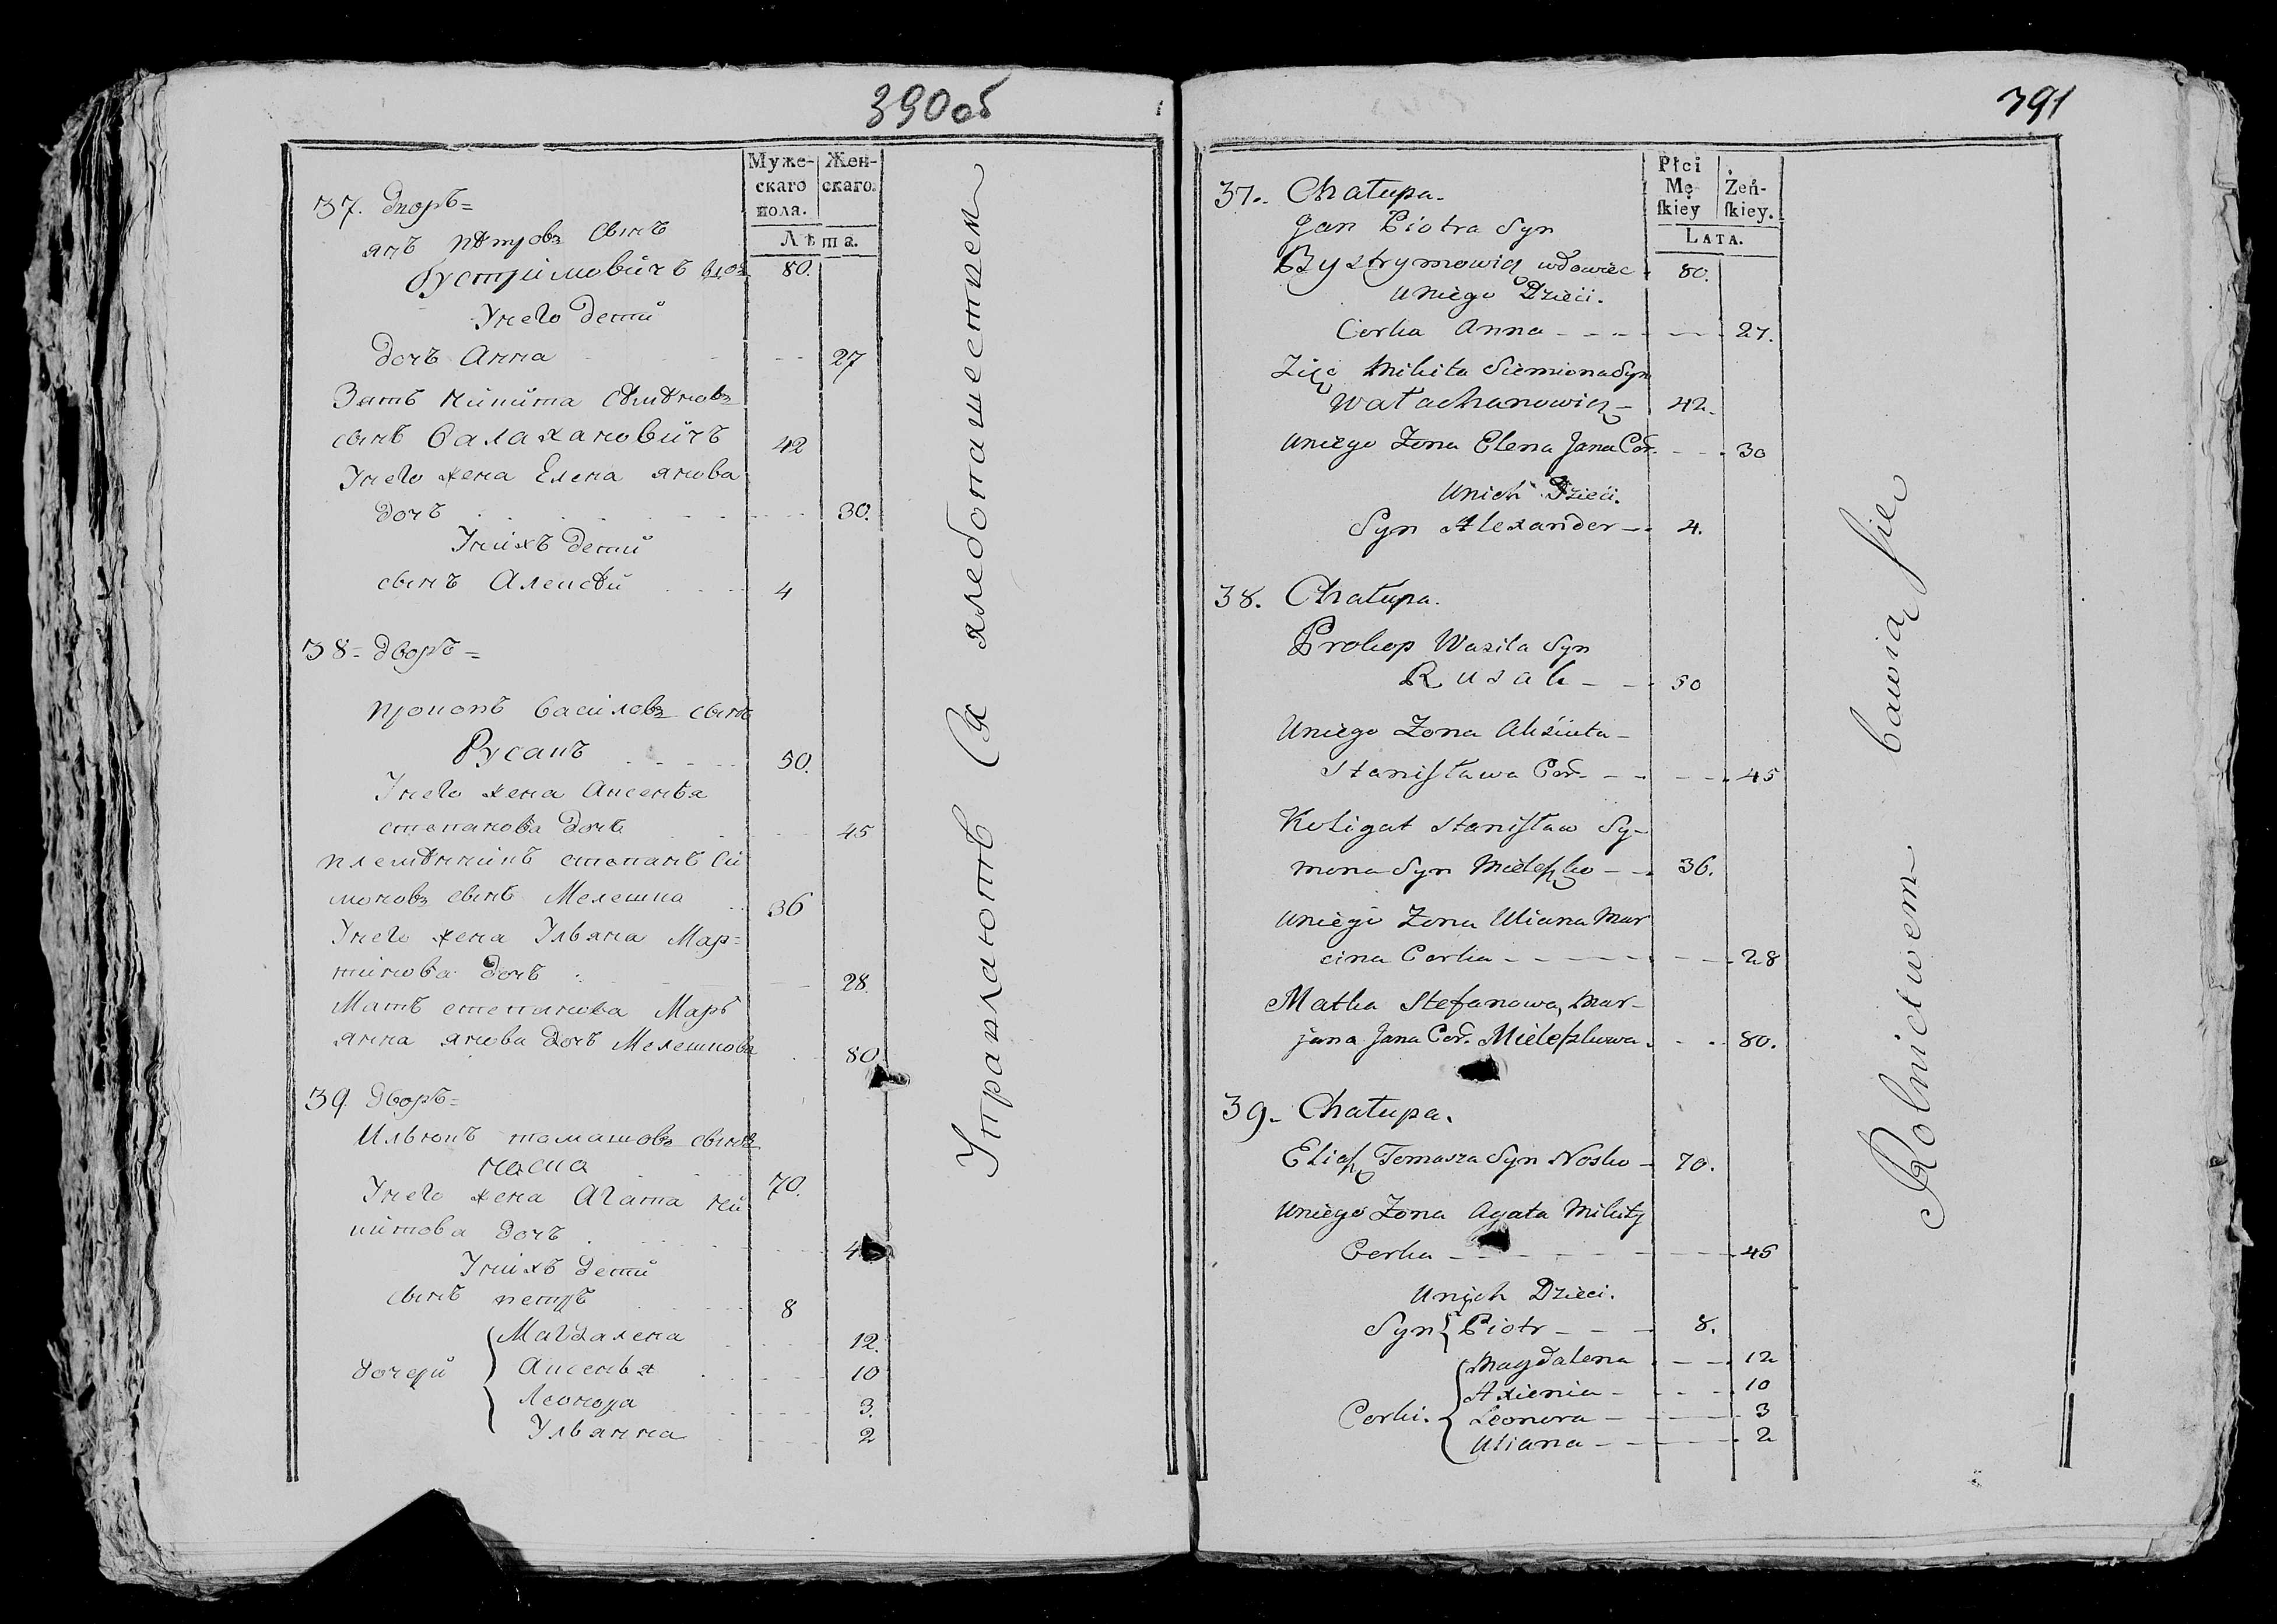 390об
Муже-
скаго
пола.
Жен-
скаго.
Лѣта.
37. дворъ=
янъ пѣтровъ сынъ
бустримовичъ вдо: 80.
Унего дети
дочъ Анна 27
Зять никита сѣмѣновъ
сынъ валахановичъ 42
Унего жена Елена янова
дочъ 30.
Унихъ дети
сынъ Алексѣй 4
38= дворъ=
прокопъ василовъ сынъ
Русакъ 50.
Унего жена Аксенья
степанова дочъ 45
племѣнникъ степанъ си
моновъ сынъ Мелешка 36
Унего жена Ульяна Мар=
тинова дочъ 28.
Мать степанова Марь
янна янова дочъ Мелешкова 80
39 дворъ=
Ильюкъ томашовъ сынъ
наска 70.
Унего жена Агата ни
китова дочъ 4
Унихъ дети
сынъ петръ 8
дочери
Магдалена 12.
Аксенья 10
Леонора 3.
Ульянна 2
Упражляютъ Ся хлебопашествем
391
Płci
Mę-
ſkiey
Żeń-
ſkiey.
LATA.
37. Chałupa.
Jan Piotra Syn
Bystrymowicz wdowiec 80.
Uniego Dzieci.
Corka Anna - - - 27.
Zięć Mikita Siemiona Syn
Wałachanowicz - 42.
Uniego Zona Elena Jana Cor. - - 30
Unich Dzieci.
Syn Alexander - 4.
38. Chałupa.
Prokop Wasila Syn
Rusak - - 50
Uniego Zona Aksiuta -
Stanisława Cor. - - - 45
Koligat Stanisław Sy-
mona Syn Mieleszko - - 36.
Uniego Zona Uliana Mar
cina Corka - - - - 28
Matka Stefanowa, Mar-
jana Jana Cor. Mieleszkowa. - - 80.
39. Chałupa.
Eliasz Tomasza Syn Nosko - 70.
Uniego Zona Agata Mikity
Corka - - - - - 45
Unich Dzieci.
Syn { Piotr - - - 8.
Corki.
Magdalena - - 12
Axienia - - - 10
Leonora - - - 3
Uliana - - - 2
Rolnictwem bawią się